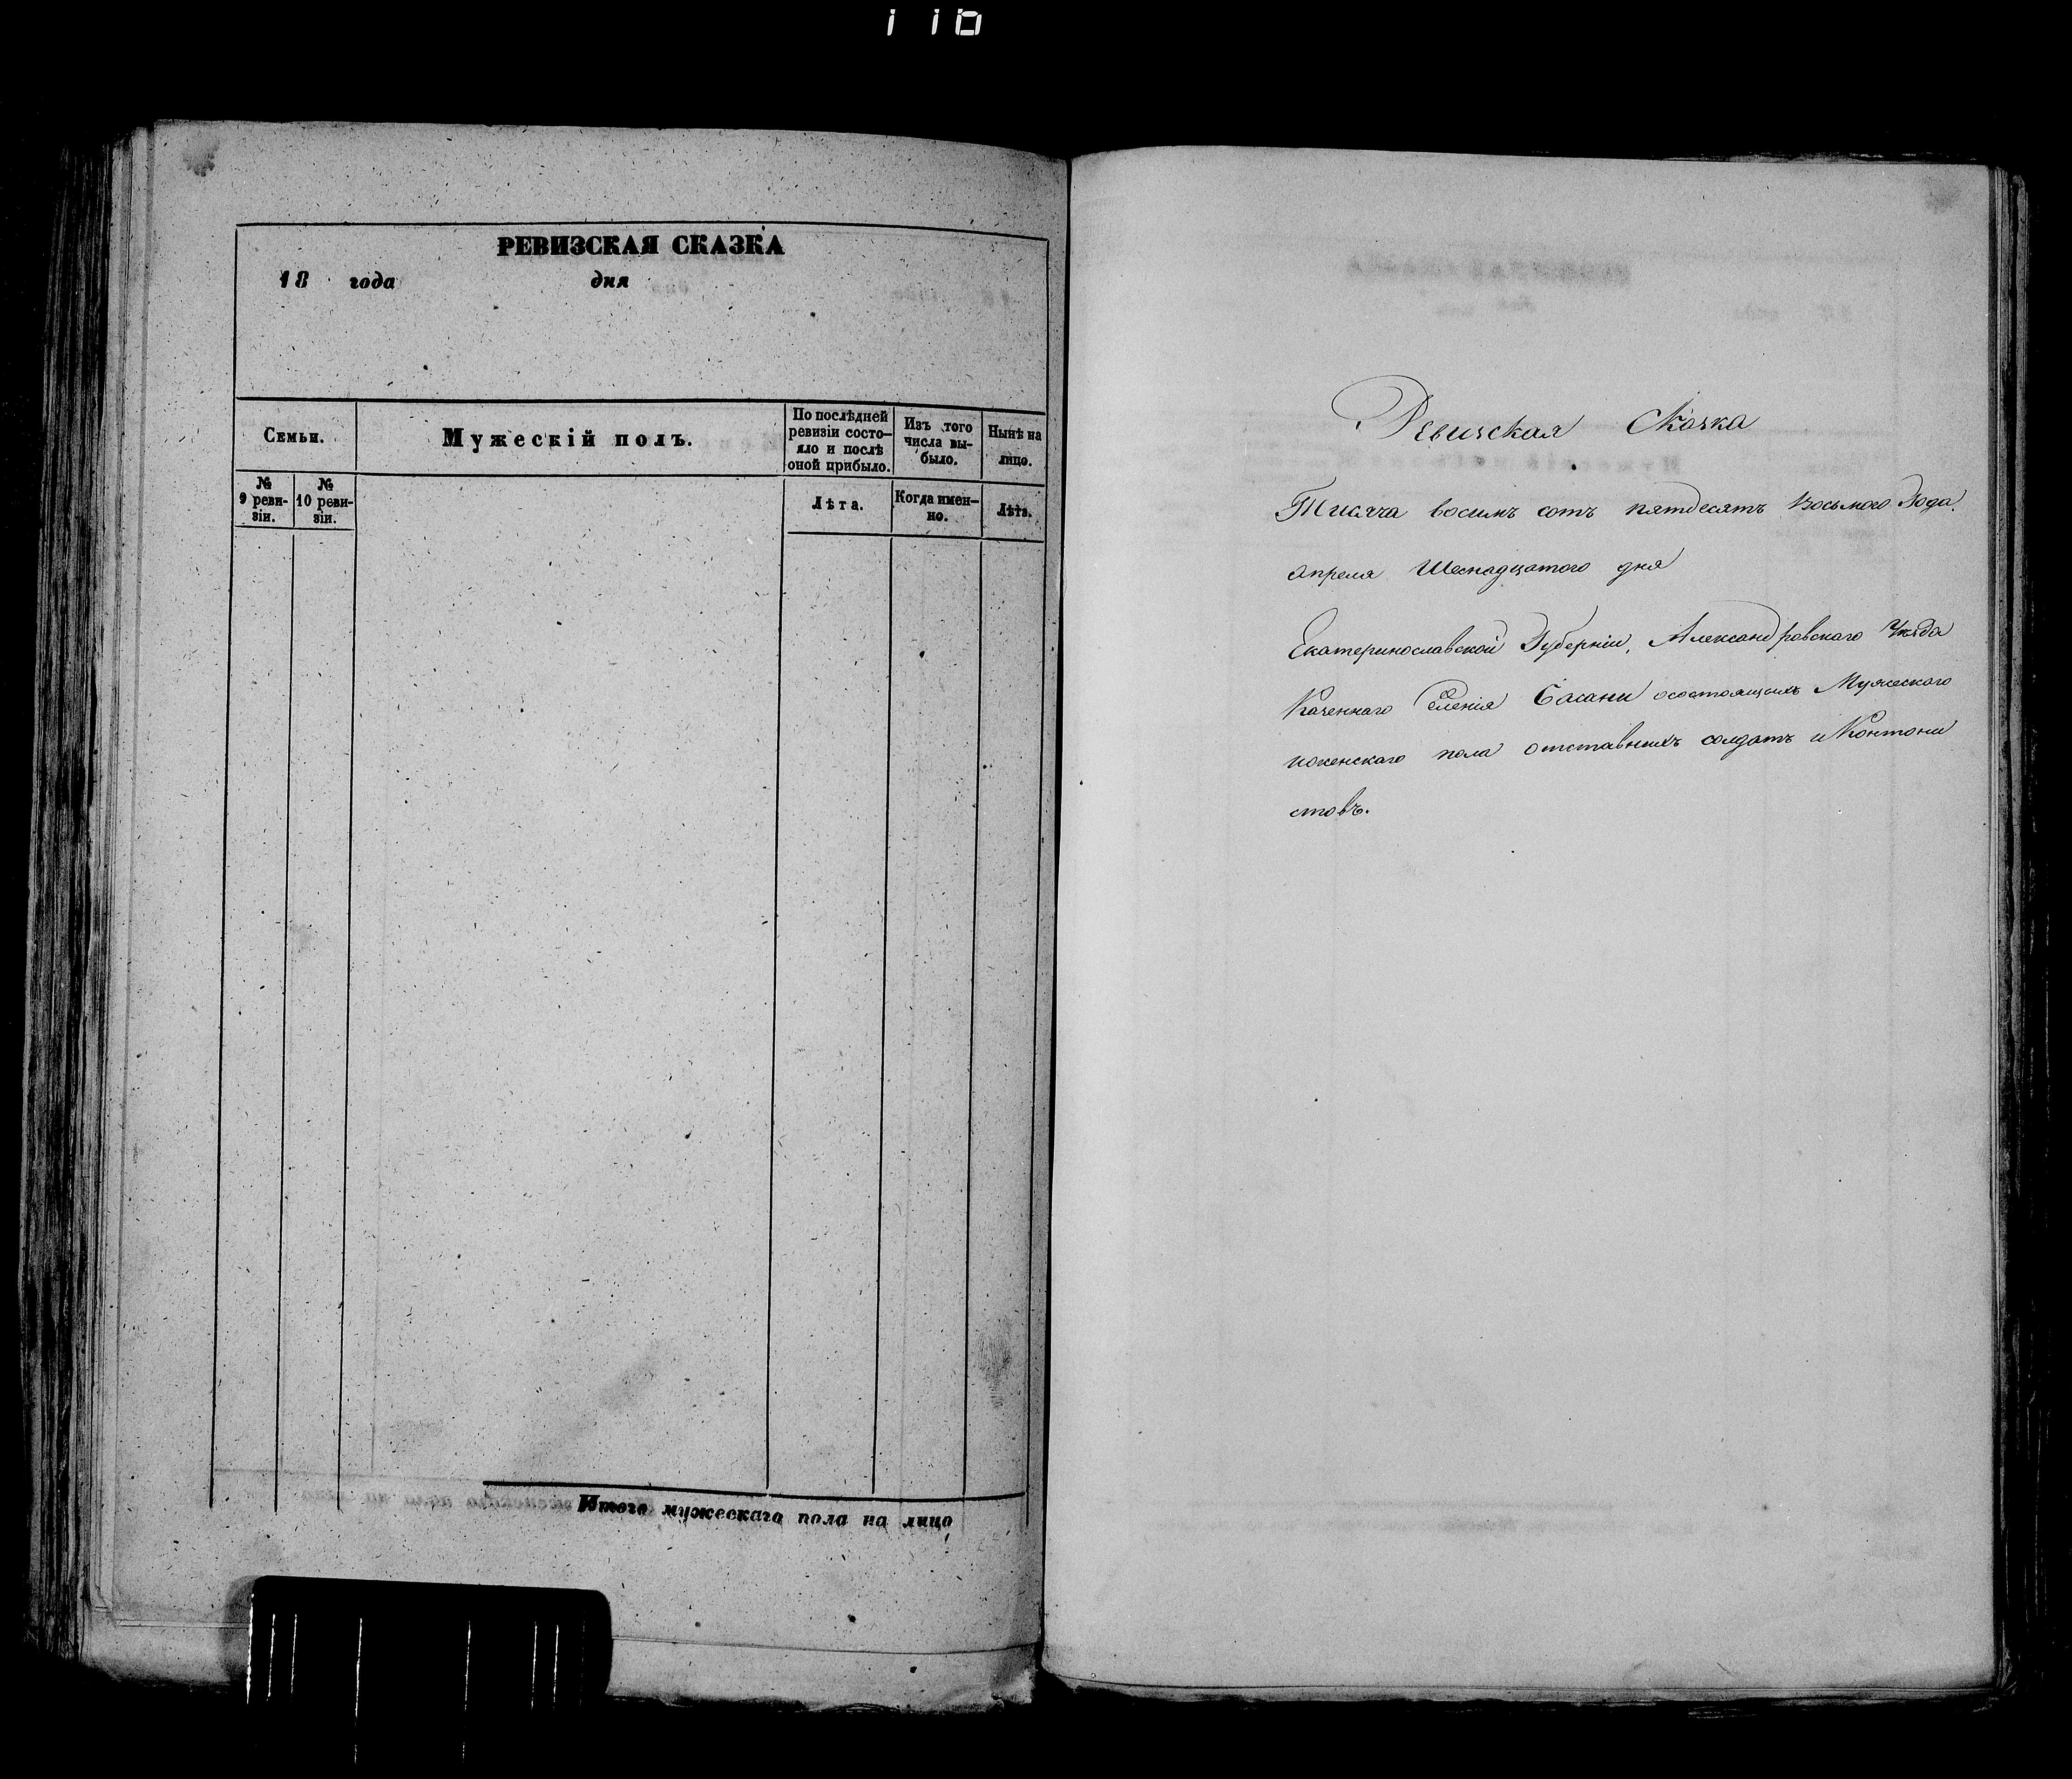 РЕВИЗСКАЯ СКАЗКА
18 года дня
Семьи.
Мужескій полъ.
По послѣдней ревизіи состо-
яло и послѣ
оной прибыло.
Изъ того
числа вы-
было.
Нынѣ на
лицо.
№
9 реви-
зіи.
№
10 реви-
зіи.
Лѣта.
Когда имен-
но.
Лѣта.
Итого мужескаго пола на лицо
Ревизская Сказка
Тисячa восимъ сотъ пятдесятъ Восьмого Года.
апреля Шеснадцатого дня
Екатеринославской Губерніи, Александровского Уезда
Казеннаго Селенія Басани осостоящихъ Мужеского
иженскаго пола отставныхъ солдатъ и Контони
стовъ.